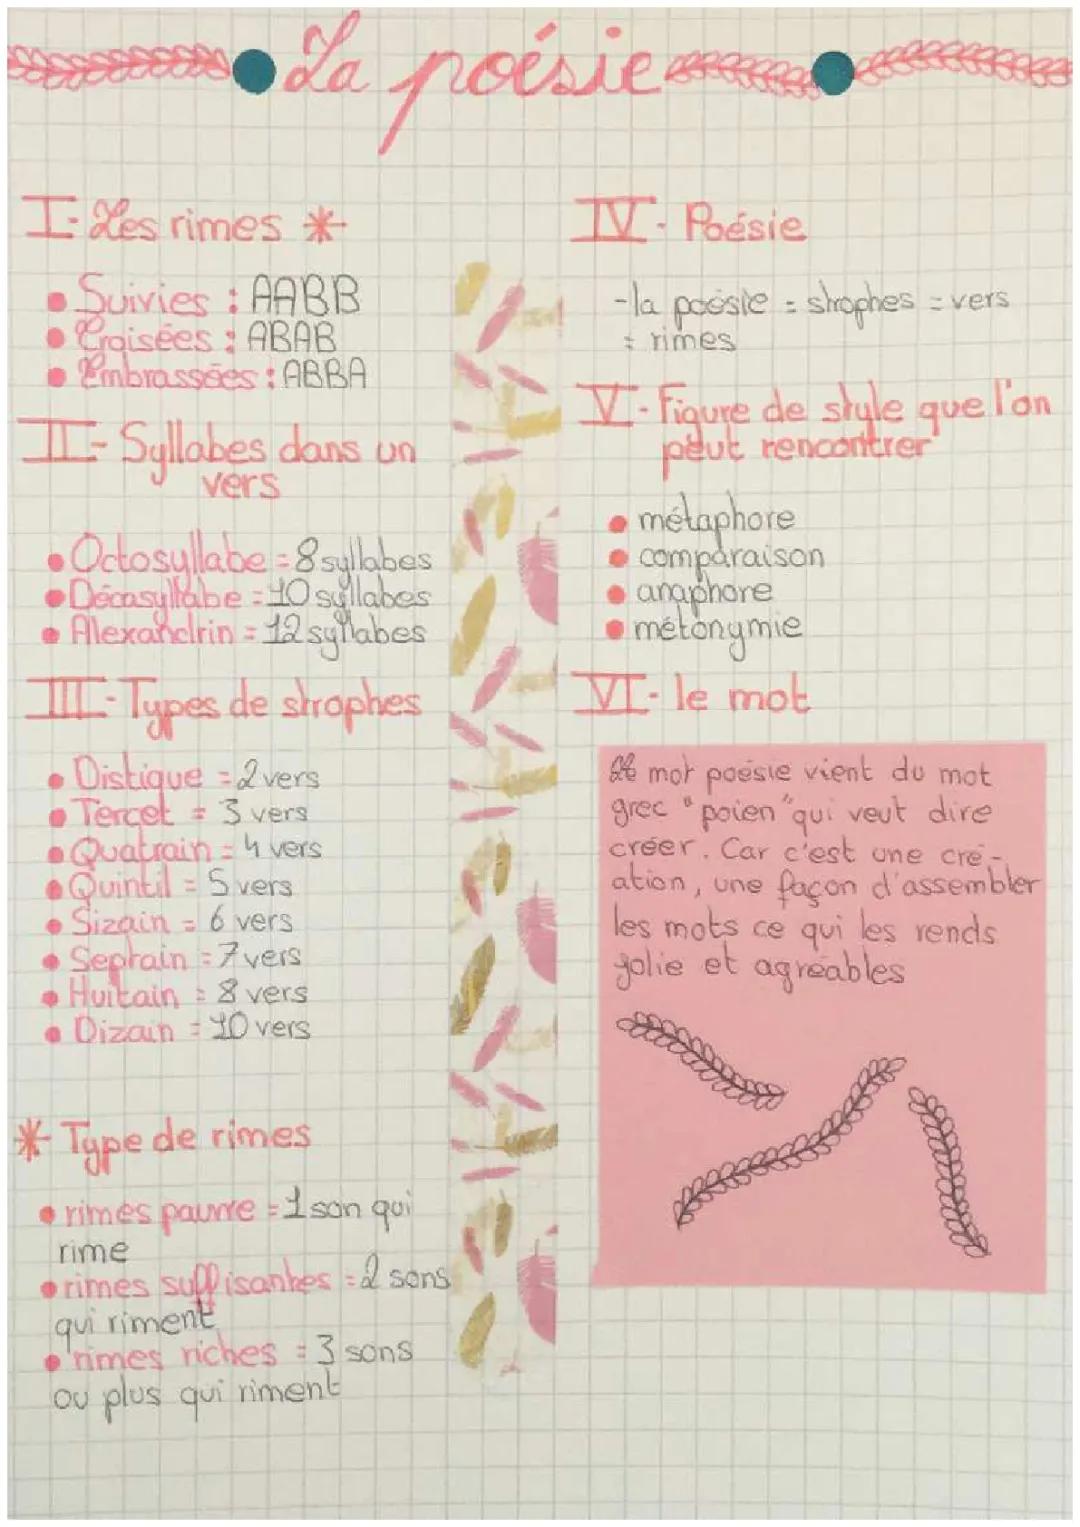 La poésie
I- Les rimes *
• Suivies : AABB
• Croisées : ABAB
• Embrassées : ABBA
II- Syllabes dans un
vers
• Octosyllabe = 8 syllabes
• Décasyllabe = 10 syllabes
• Alexandrin = 12 syllabes
III- Types de strophes
• Distique = 2 vers
• Tercet = 3 vers
• Quatrain = 4 vers
• Quintil = 5 vers
• Sizain = 6 vers
• Septain = 7 vers
• Huitain = 8 vers
• Dizain = 10 vers
* Type de rimes
• rimes pauvre = 1 son qui
rime
• rimes suffisantes = 2 sons
qui riment
• rimes riches = 3 sons
ou plus qui riment
IV- Poésie
- la poésie = strophes = vers
= rimes
V- Figure de style que l'on
peut rencontrer
• métaphore
• comparaison
• anaphore
• métonymie
VI- le mot
Le mot poésie vient du mot
grec "poien" qui veut dire
créer. Car c'est une cré-
ation, une façon d'assembler
les mots ce qui les rends
jolie et agréables